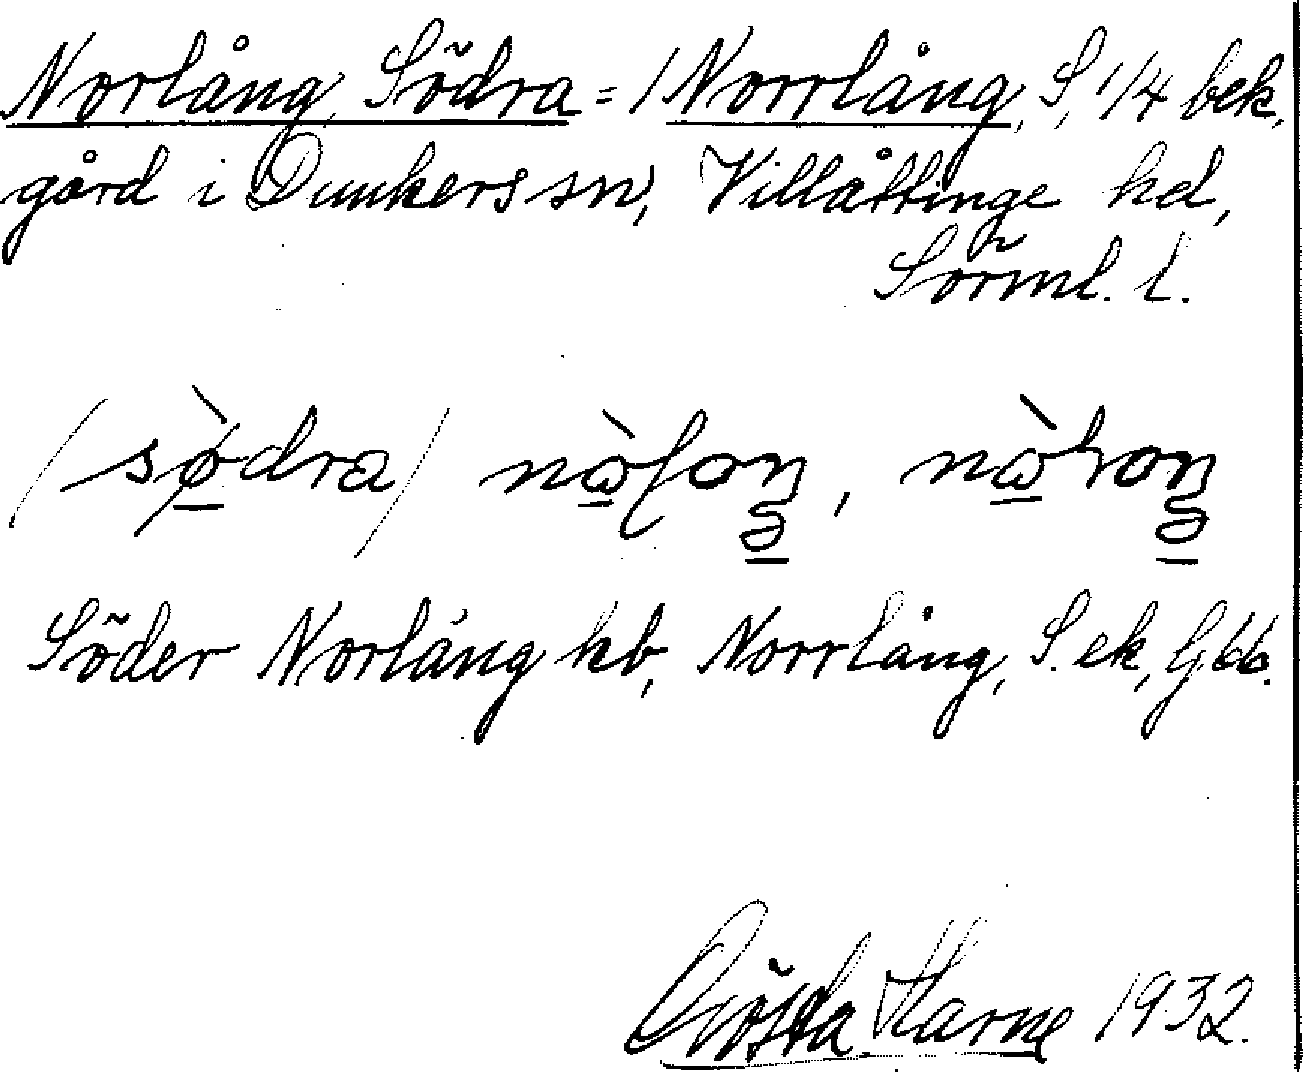 Norlång, Södra = / Norrlång, S, 1/4 bek.
gård i Dunkers sn, Villåttinge hd,
Sörml. l.
Söder Norlång kb, Norrlång, S. ek, Gbb.
Gösta Harne 1932.